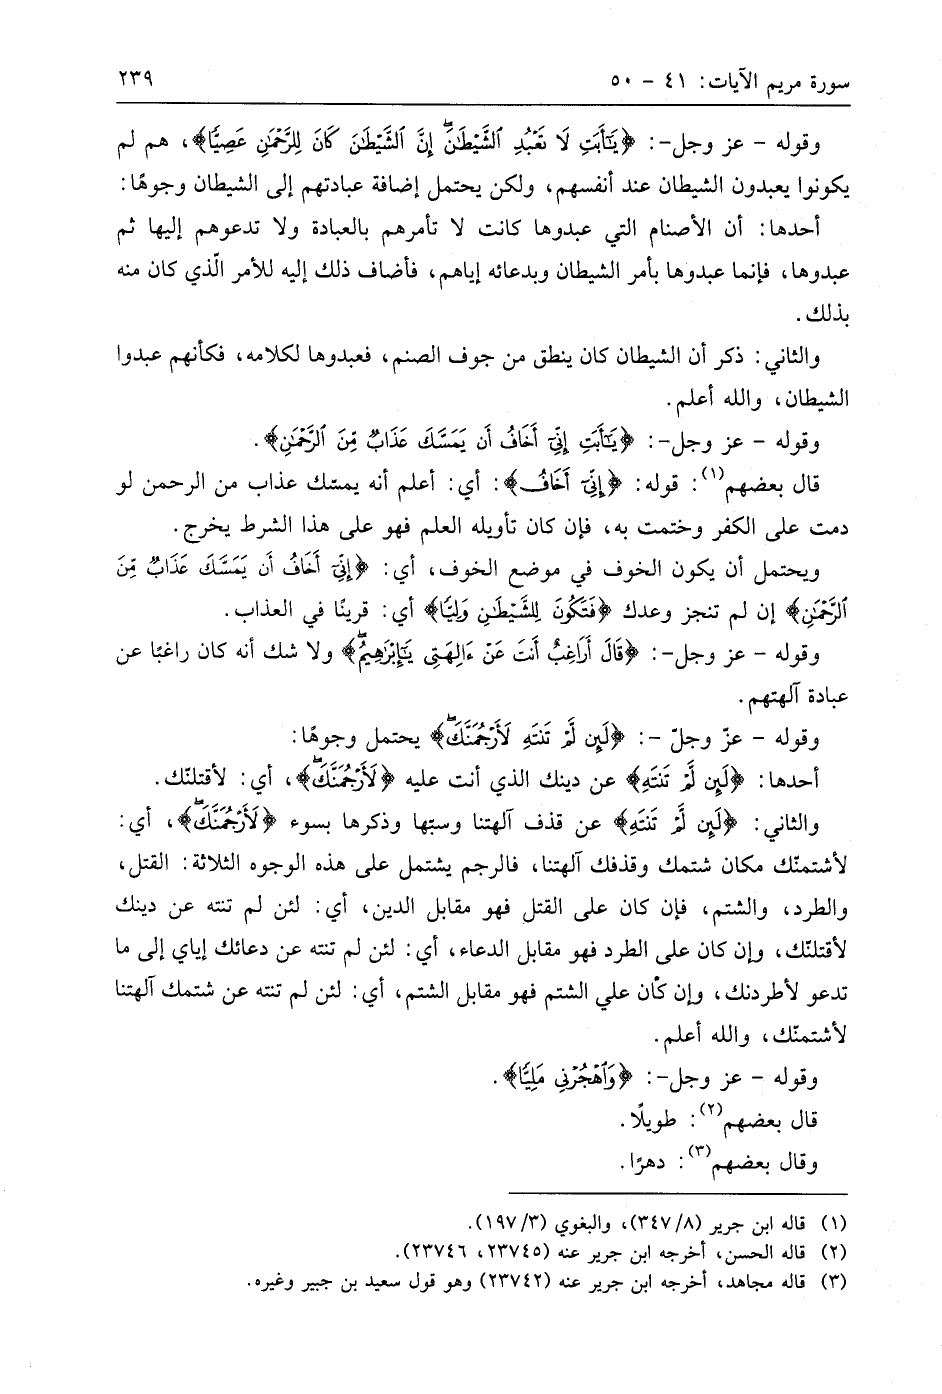 سورة مريم الآيات: ٤١ - ٥٠ ٢٣٩
وقوله - عز وجل-: ﴿يَٰٓأَبَتِ لَا تَعۡبُدِ ٱلشَّيۡطَٰنَۖ إِنَّ ٱلشَّيۡطَٰنَ كَانَ لِلرَّحۡمَٰنِ عَصِيّٗا﴾، هم لم
يكونوا يعبدون الشيطان عند أنفسهم، ولكن يحتمل إضافة عبادتهم إلى الشيطان وجوهًا:
أحدها: أن الأصنام التي عبدوها كانت لا تأمرهم بالعبادة ولا تدعوهم إليها ثم
عبدوها، فإنما عبدوها بأمر الشيطان وبدعائه إياهم، فأضاف ذلك إليه للأمر الّذي كان منه
بذلك.
والثاني: ذكر أن الشيطان كان ينطق من جوف الصنم، فعبدوها لكلامه، فكأنهم عبدوا
الشيطان، والله أعلم.
وقوله - عز وجل-: ﴿يَٰٓأَبَتِ إِنِّيٓ أَخَافُ أَن يَمَسَّكَ عَذَابٞ مِّنَ ٱلرَّحۡمَٰنِ﴾.
قال بعضهم(١): قوله: ﴿إِنِّيٓ أَخَافُ﴾: أي: أعلم أنه يمسّك عذاب من الرحمن لو
دمت على الكفر وختمت به، فإن كان تأويله العلم فهو على هذا الشرط يخرج.
ويحتمل أن يكون الخوف في موضع الخوف، أي: ﴿إِنِّيٓ أَخَافُ أَن يَمَسَّكَ عَذَابٞ مِّنَ
ٱلرَّحۡمَٰنِ﴾ إن لم تنجز وعدك ﴿فَتَكُونَ لِلشَّيۡطَٰنِ وَلِيّٗا﴾ أي: قرينًا في العذاب.
وقوله - عز وجل-: ﴿قَالَ أَرَاغِبٌ أَنتَ عَنۡ ءَالِهَتِي يَٰٓإِبۡرَٰهِيمُۖ﴾ ولا شك أنه كان راغبًا عن
عبادة آلهتهم.
وقوله - عزّ وجلّ -: ﴿لَئِن لَّمۡ تَنتَهِ لَأَرۡجُمَنَّكَۖ﴾ يحتمل وجوهًا:
أحدها: ﴿لَئِن لَّمۡ تَنتَهِ﴾ عن دينك الذي أنت عليه ﴿لَأَرۡجُمَنَّكَۖ﴾، أي: لأقتلنّك.
والثاني: ﴿لَئِن لَّمۡ تَنتَهِ﴾ عن قذف آلهتنا وسبّها وذكرها بسوء ﴿لَأَرۡجُمَنَّكَۖ﴾، أي:
لأشتمنّك مكان شتمك وقذفك آلهتنا، فالرجم يشتمل على هذه الوجوه الثلاثة: القتل،
والطرد، والشتم، فإن كان على القتل فهو مقابل الدين، أي: لئن لم تنته عن دينك
لأقتلنّك، وإن كان على الطرد فهو مقابل الدعاء، أي: لئن لم تنته عن دعائك إياي إلى ما
تدعو لأطردنك، وإن كان علي الشتم فهو مقابل الشتم، أي: لئن لم تنته عن شتمك آلهتنا
لأشتمنّك، والله أعلم.
وقوله - عز وجل-: ﴿وَٱهۡجُرۡنِي مَلِيّٗا﴾.
قال بعضهم(٢): طويلًا.
وقال بعضهم(٣): دهرًا.
(١) قاله ابن جرير (٣٤٧/٨)، والبغوي (١٩٧/٣).
(٢) قاله الحسن، أخرجه ابن جرير عنه (٢٣٧٤٥، ٢٣٧٤٦).
(٣) قاله مجاهد، أخرجه ابن جرير عنه (٢٣٧٤٢) وهو قول سعيد بن جبير وغيره.